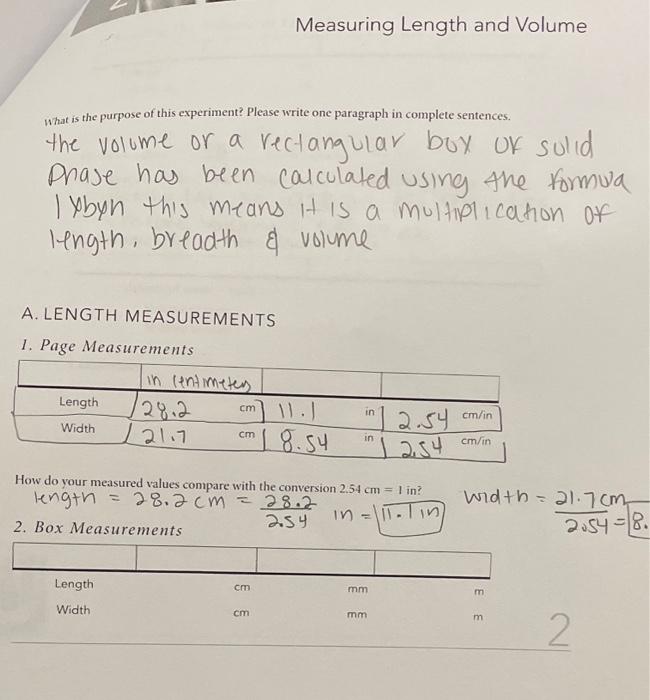 Measuring Length and Volume
What is the purpose of this experiment? Please write one paragraph in complete sentences.
the volume or a rectangular box or solid
phase has been calculated using the formula
lxbxh this means it is a multiplication of
length, breadth & volume
A. LENGTH MEASUREMENTS
1. Page Measurements
in centimeters
Length 28.2 cm 11.1 in 2.54 cm/in
Width 21.7 cm 8.54 in 2.54 cm/in
How do your measured values compare with the conversion 2.54 cm = 1 in?
length = 28.2 cm = 28.2/2.54 in = 11.1 in width = 21.7cm/2.54 = 8.
2. Box Measurements
Length cm mm m
Width cm mm m
2